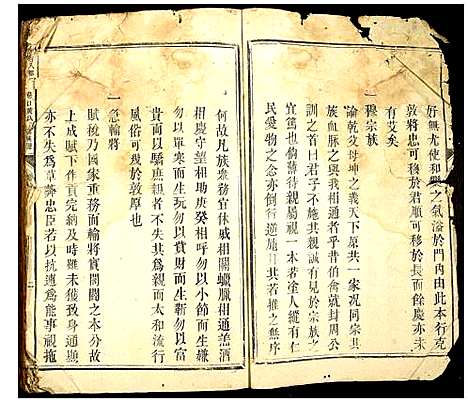 好無尤使和
之氣溢於門內由此本行克
敦將忠可移於君順可移於長而餘慶亦未
有艾矣
一穆宗族
論乾父母坤之義天下原共一家况同宗共
族血脉之與我相通者乎昔伯禽就封周公
訓之首曰君子不施其親誠有見於宗族之
篤豈可以偷薄待親屬視一本若塗人縱有
民愛物之念亦倒行逆施
其若推之無序
何故凡族眾務宜休戚相關蠟臘相通羔酒
相慶守望相助庚癸相呼勿以小節而生嫌
勿以單寒而生玩勿以貲財而生漸勿以富
貴而以驕庶親者不失其為親而太和流行
風俗可幾於敦厚也
一急輸將
賦稅乃國家重務而輸將實閭閻之本分故
上成賦下作貢完納及時雖未獲致身通顯
亦不失為草莽忠臣若以抗逋為能事視拖